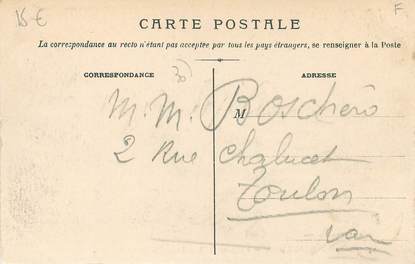 15 €
F
CARTE POSTALE
La correspondance au recto n'étant pas acceptée par tous les pays étrangers, se renseigner à la Poste
CORRESPONDANCE
ADRESSE
M. M. M Boschéro
2 Rue Chalucet
Toulon
Var